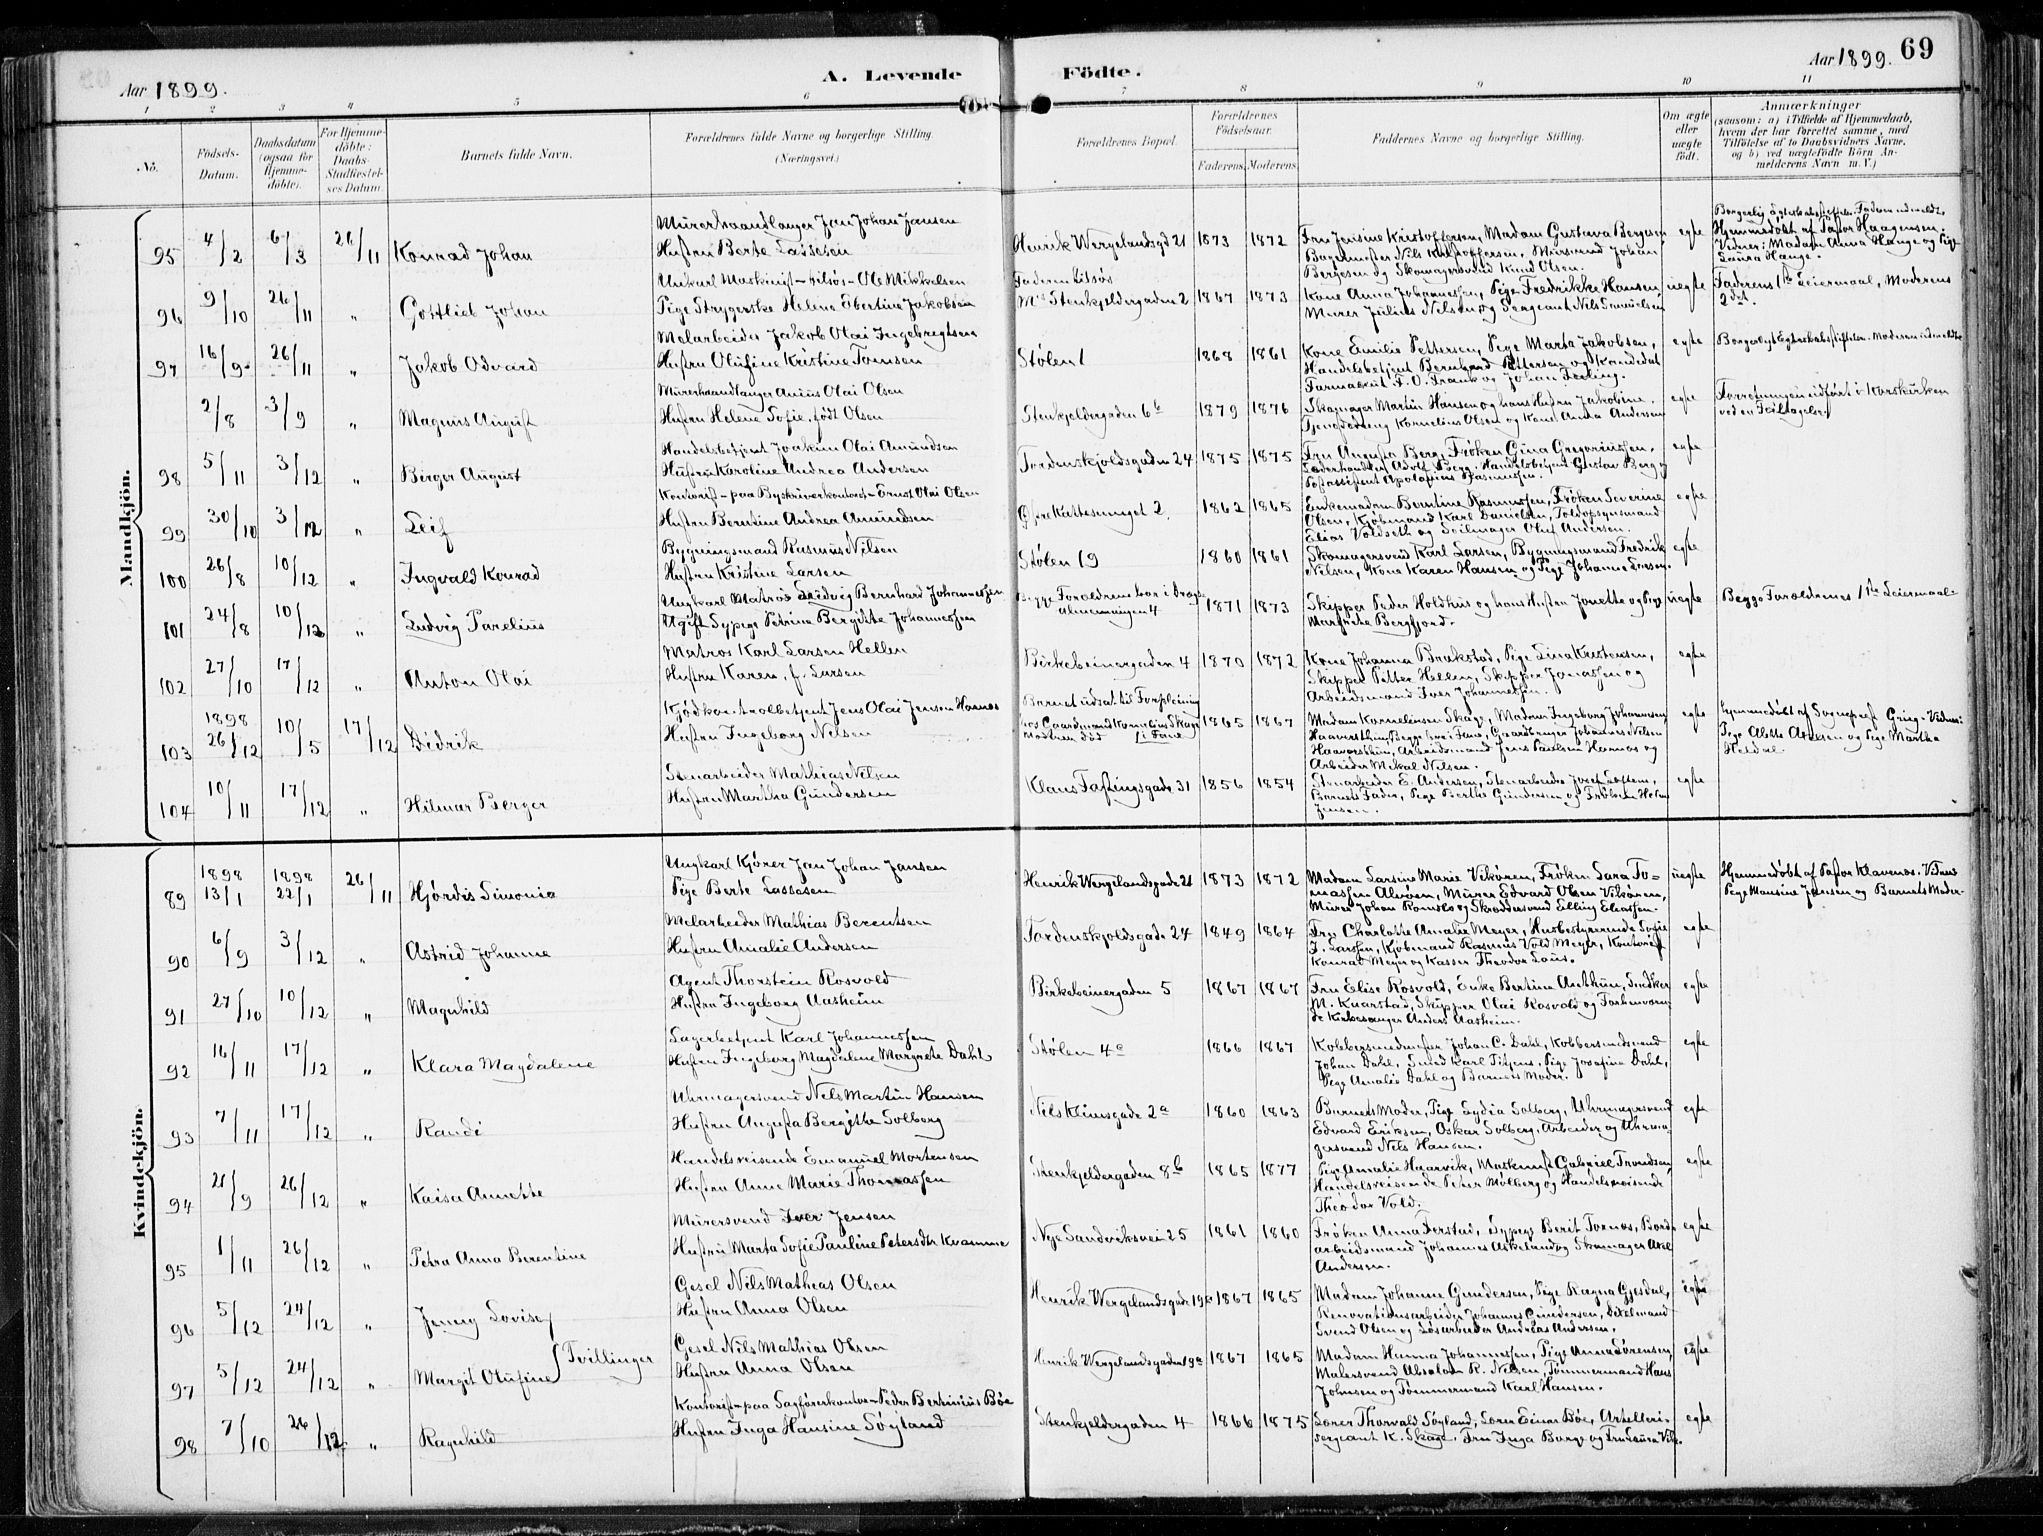 Aar 1899.
A. Levende Födte.
Aar 1899. 69
1 2 3 4 5 6 7 8 9 10 11
No.
Födsels-Datum.
Daabsdatum (ogsaa for Hjemme-döbte).
For Hjemme-döbte: Daabs-Stadfæstel-ses Datum.
Barnets fulde Navn.
Forældrenes fulde Navne og borgerlige Stilling. (Næringsvei.)
Forældrenes Bopæl.
Forældrenes Födselsaar.
Faderens. Moderens.
Faddernes Navne og borgerlige Stilling.
Om ægte eller uægte födt.
Anmærkninger
(saasom: a) i Tilfælde af Hjemmedaab, hvem der har forrettet samme, med Tilföielse af to Daabsvidners Navne, og b) ved uægtefödte Börn An-melderens Navn m. V.)
Mandkjön.
95 4/2 6/3 26/11 Konrad Johan
Murerhaandlanger Jan Johan Jansen
Hustru Berte Lassesen
Henrik Wergelandsgd 21 1873 1872
Fru Jensine Kristoffersen, Madam Gustava Bergesen
Bagermester Nils Kristoffersen, Mursvend Johan
Bergesen og Skomagersvend Knud Olsen.
egte
Hjemmedøbt af Pastor Haagensen.
Vidner: Madam Anna Hauge og Pige
Laura Hauge.
96 9/10 26/11 " Gottlieb Johan
Unkarl Maskinist tilsøs Ole Mikkelsen
Pige Strygerske Helene Ebertine Jakobsen
Faderen tilsøs
Mo Stenkjeldergaden 2 1867 1873
Kone Anna Johannessen, Pige Fredrikke Hansen,
Murer Julius Nilsen og Sergeant Nils Samuelsen
uegte
Faderens 1ste Leiermaal, Moderens
2det.
97 16/9 26/11 " Jakob Odvard
Melarbeider Jakob Olai Ingebregtsen
Hustru Olufine Kristine Tomsen
Stølen 1 1868 1861
Kone Emilie Pettersen, Pige Marta Jakobsen,
Handelsbetjent Bernhard Pettersen og Kandidat
Farmaceut F. O. Frank og Johan
egte
Borgerligt Egteskabsstiftelse. Moderen udmeldt
2/8 3/9 " Magnus August
Murerhaandlanger Anius Olai Olsen
Hustru Helene Sofie, født Olsen
Stenkjeldergaden 6b 1879 1876
Skomager Martin Hansen og hans Hustru Jakobine,
Tjenestedreng Kornelius Olsen og Kone Anna Andersen
egte
Forretningen udført i Korskirken
ved en Feiltagelse
98 5/11 3/12 " Birger August
Handelsbetjent Joakim Olai Amundsen
Hustru Karoline Andrea Andersen
Tordenskjoldsgaden 24 1875 1875
Fru Augusta Berg, Frøken Gina Gregoriussen,
Læderhandler Adolf Berg, Handelsbetjent Gustav Berg og
Rasmussen.
egte
99 30/10 3/12 " Leif
Kontorist paa Byskriverkontoret Ernst Olai Olsen
Hustru Berntine Andrea Amundsen
Øvre Kattesmuget 2. 1862 1865
Enkemadam Berntine Rasmussen, Frøken Severine
Olsen, Kjøbmand Karl Danielsen, Toldopsynsmand
Elias Voldseth og Seilmager Oluf Andersen.
egte
100 26/8 10/12 " Ingvald Konrad
Bygningsmand Rasmus Nilsen
Hustru Kristine Larsen
Stølen 19 1860 1861
Skomagersvend Karl Larsen, Bygningsmand Fredrik
Nilsen, Kone Karen Hansen og Pige Johanne Larsen.
egte
101 24/8 10/12 " Ludvig Parelius
Ungkarl Matros Ludvig Bernhard Johannessen
Ugift Sypige Petrine Bergitte Johannessen
Begge Forældrene bor i
almenningen 4 1871 1873
Skipper Peder Holdhus og hans Hustru Jonette og Pige
Margrethe Bergfjord.
uegte
Begge Forældrenes 1ste Leiermaal
102 27/10 17/12 " Anton Olai
Matros Karl Larsen Hellen
Hustru Karen, f. Larsen
Birkebeinergaden 4 1870 1872
Kone Johanna Brakstad, Pige Lina Kristensen,
Skipper Petter Hellen, Skipper Jonassen og
Arbeidsmand Iver Johannessen.
egte
103 1898 26/12 10/5 17/12 Didrik
Kjødkontrolbetjent Jens Olai Jensen Hamos
Hustru Ingeborg Nilsen
Barnet udsat til Forpleining
hos Gaardmand Kornelius Skage
i Fane 1865 1867
Madam Kornelinsen Skage, Madam Ingeborg Johannesen
Haavardsthun, Begge bor i Fane, Gaardbruger Johannes Nilsen
Haavardsthun, Arbeidsmand Jens Paulsen Hamos og
Arbeider Mikal Nilsen.
egte
Hjemmedøbt af Sogneprest Grieg. Vidner:
Pige Alette Arnesen og Pige Martha
Heldal.
104 10/11 17/12 " Hilmar Berger
Stenarbeider Mathias Nilsen
Hustru Martha Gundersen
Klaus Fastingsgade 31 1856 1854
Stenarbeider E. Andersen, Stenarbeider Josef
Barnets Fader, Pige Berthe Gundersen og Frøken Helen
Jensen.
egte
Kvindekjön.
89 1898 13/1 1898 22/1 26/11 Hjørdis Simonia
Ungkarl Kjører Jan Johan Jansen
Pige Berte Lassesen
Henrik Wergelandsgade 21 1873 1872
Madam Larsine Marie Vikøren, Frøken Sara To=
massen Alvøen, Murer Edvard Olsen Vikøren,
Murer Johan Romslo og Skreddersvend Elling Eliassen.
uegte
Hjemmedøbt af Pastor Klavenæs. Vidner
Pige Mansine Jansen og Barnets Moder
90 6/9 3/12 " Astrid Johanne
Melarbeider Mathias Berentsen
Hustru Amalie Andersen
Tordenskjoldsgade 24 1849 1864
Fru Charlotte Amalie Meyer, Husbestyrerinde Sofie
J. Larssen, Kjøbmand Rasmus Vold Meyer, Kontorist
Konrad Meyer og Kasser Theodor Lous.
egte
91 27/10 10/12 " Magnhild
Agent Thorstein Rosvold
Hustru Ingeborg Aasheim
Birkebeinergaden 5 1867 1867
Fru Elise Rosvold, Enke Bertine Austhun, Snedker
M. Knarstad, Skipper Olai Rosvold og Forhenværen
de Kirkesanger Anders Aasheim.
egte
92 16/11 17/12 " Klara Magdalene
Lagerbetjent Karl Johannessen
Hustru Ingeborg Magdalene Margrete Dahl
Stølen 4a 1866 1867
Kobbersmedmester Johan C. Dahl, Kobbersmedsvend
Johan Dahl, Smed Karl Titjens, Pige Josefine Dahl,
Pige Amalie Dahl og Barnets Moder.
egte
93 7/11 17/12 " Randi
Uhrmagersvend Nils Martin Hansen
Hustru Augusta Bergithe Solberg
Nils Klimsgade 2a 1860 1863
Barnets Moder, Pige Lydia Solberg, Uhrmagersvend
Edvard Eriksen, Oskar Solberg, Arbeider og Uhrma-
gersvend Nils Hansen.
egte
94 21/9 26/12 " Kaisa Annette
Handelsreisende Emanuel Mortensen
Hustru Anne Marie Thomassen
Stenkjeldergaden 8b 1865 1877
Pige Amalie Haarvik, Maskinist Gabriel Trondsen,
Handelsreisende Peter Molberg og Handelsreisende
Theodor Vold.
egte
95 1/11 26/12 " Petra Anna Berentine
Murersvend Iver Jensen
Hustru Marta Sofie Pauline Petersdtr Kvamme
Nye Sandviksvei 25 1861 1860
Frøken Anna Ferstad, Sypige Berit Tornæs, Bord-
arbeidsmand Johannes Askeland og Skomager Axel
Andersen.
egte
96 5/12 24/12 " Jenny Lovise
Gesel Nils Mathias Olsen
Hustru Anna Olsen
Henrik Wergelandsgade 19a 1867 1865
Madam Johanne Gundersen, Pige Ragna Gjesdal,
Renovationsarbeider Johannes Gundersen, Dikselmand
Svend Olsen og Løsarbeider Andreas Andersen.
egte
Tvillinger
97 5/12 24/12 " Margit Olufine
Gesel Nils Mathias Olsen
Hustru Anna Olsen
Henrik Wergelandsgaden 19a 1867 1865
Madam Hanna Johannessen, Pige Anna Sørensen,
Malersvend Absalon R. Nilsen, Tømmermand Hans
Johnsen og Tømmermand Karl Hansen.
egte
98 7/10 26/12 " Ragnhild
Kontorist paa Sagførerkontor Peder Bertinius Bøe
Hustru Inga Hansine Søyland
Stenkjeldergaden 4 1866 1875
Lærer Thorvald Søyland, Lærer Einar Bøe, Artilleri-
sergeant K. Skage, Fru Inga Borge og Fru Laura Vik.
egte